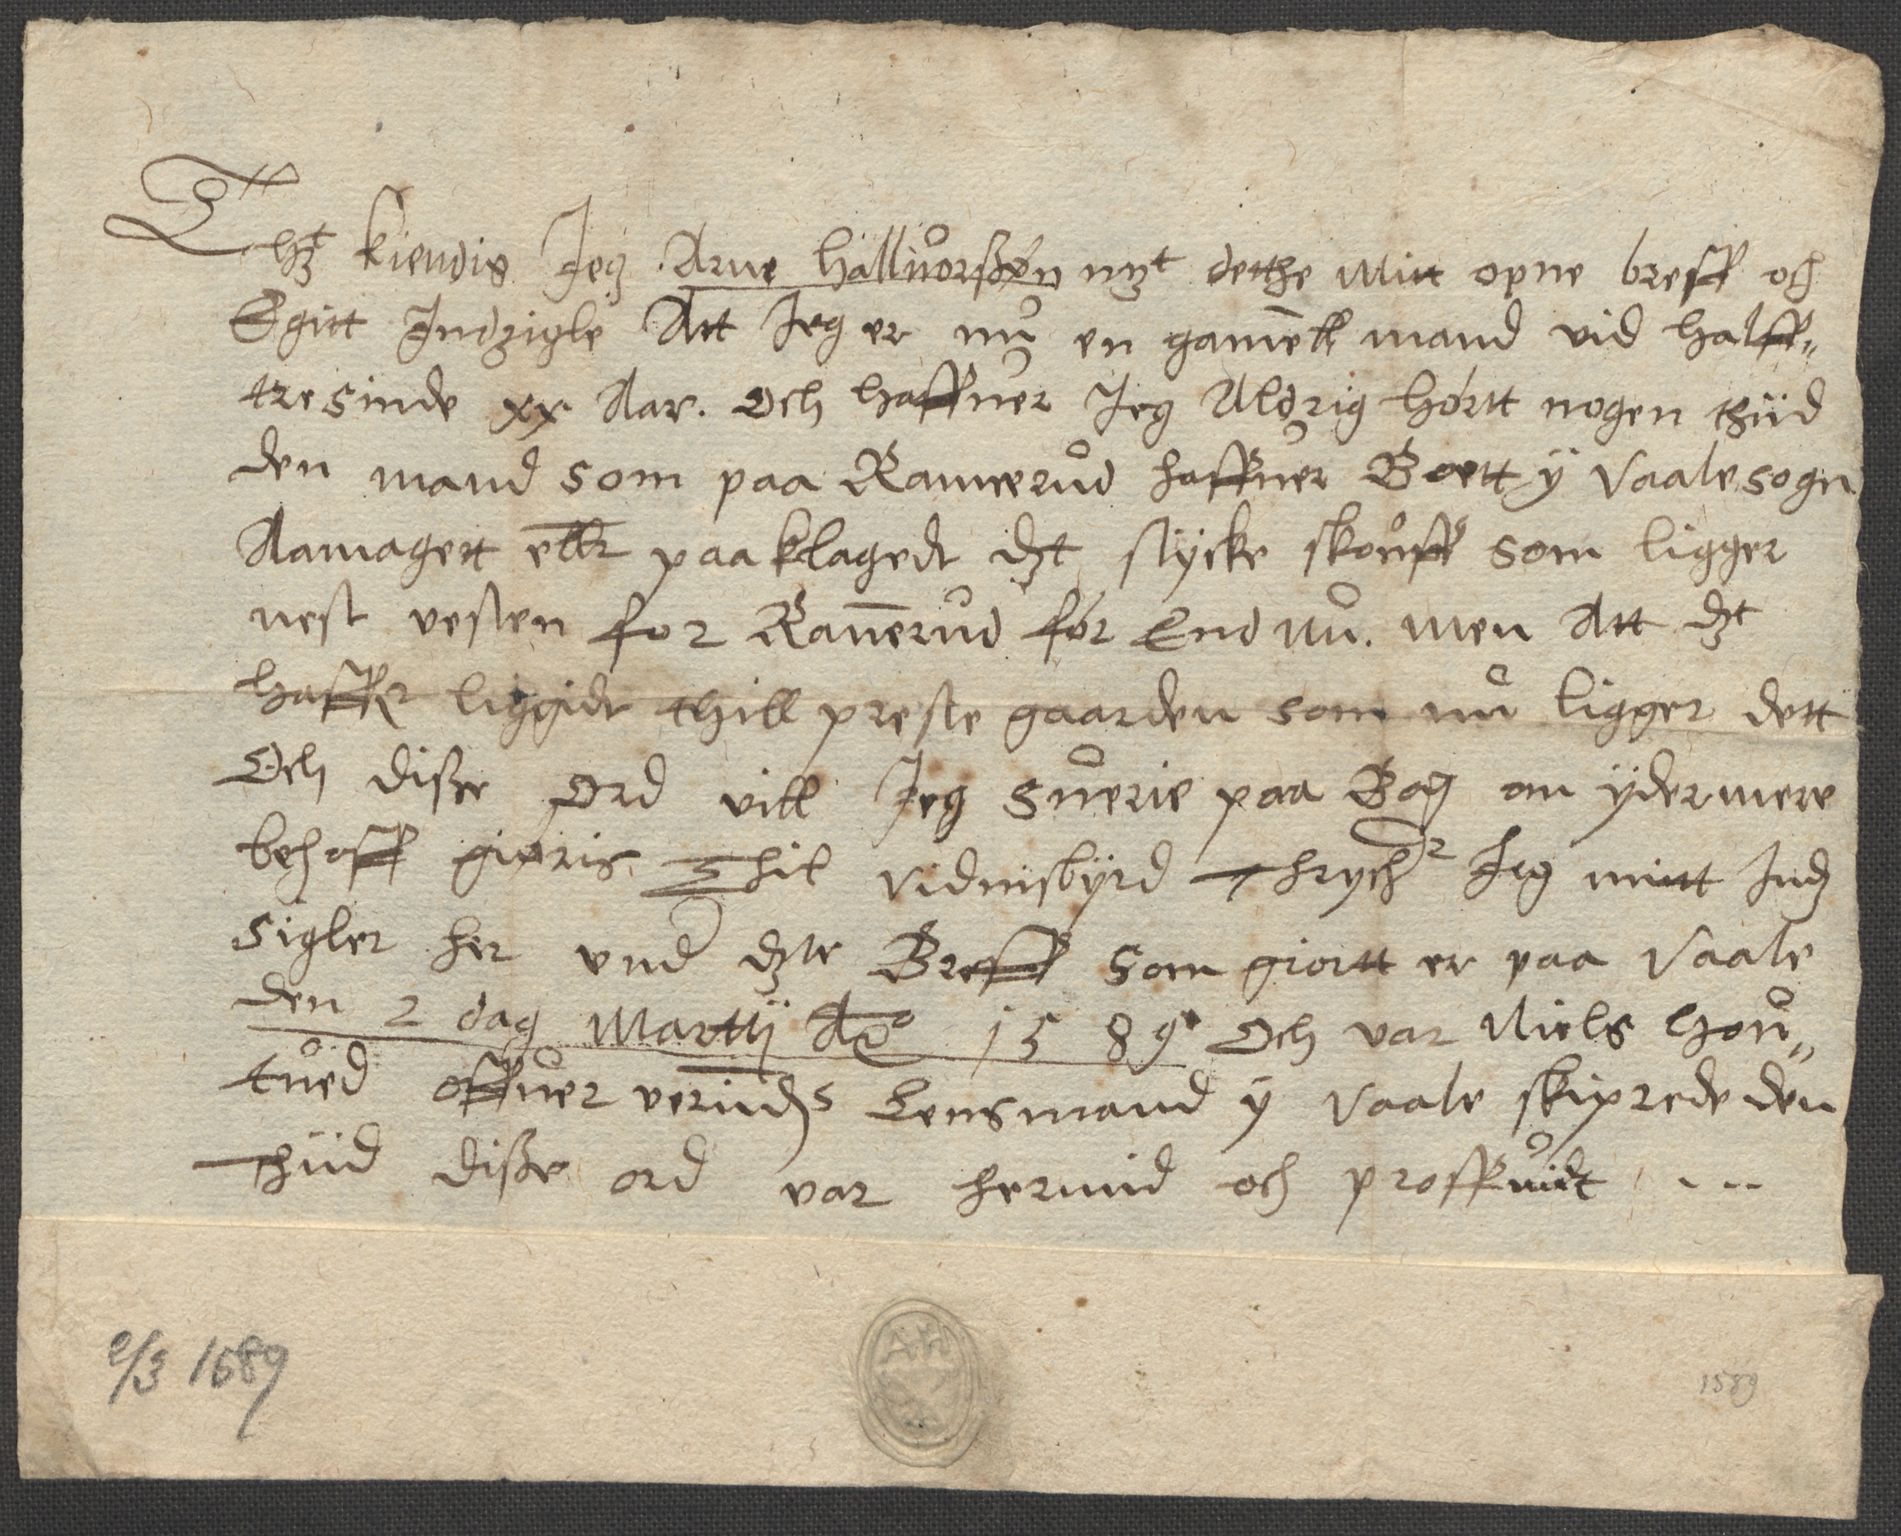 Thet kiendis Jeg Arne Halluorßøn met dette Mitt opne breff och
Egitt Indzigle Att Jeg er nu en gamell mand vid halff„
tresinde xx Aar. Och haffuer Jeg Aldrig hørtt nogen thiid
den mand som paa Ramerud haffuer Boett ÿ Vaale sogn
Aamagett eller paaklagedt det stÿcke skouff som ligger
nest vesten for Ramerud før End nu. men Att det
haffer liggidt thill preste gaarden som nu ligger dett
Och diße Ord vill Jeg suerie paa Bog om ÿdermere
behoff giøris Thil vidnisbÿrd thrycher Jeg mitt Ind
sigler her vnder dette Breff som giortt er paa Vaale
den 2 dag Martij Ao 1589 Och var Niels Hou„
tued offuer verinds Lensmand ÿ Vaale skiprede den
thiid diße ord var hermid och proffuidt ...
2/3 1589
AH
1589